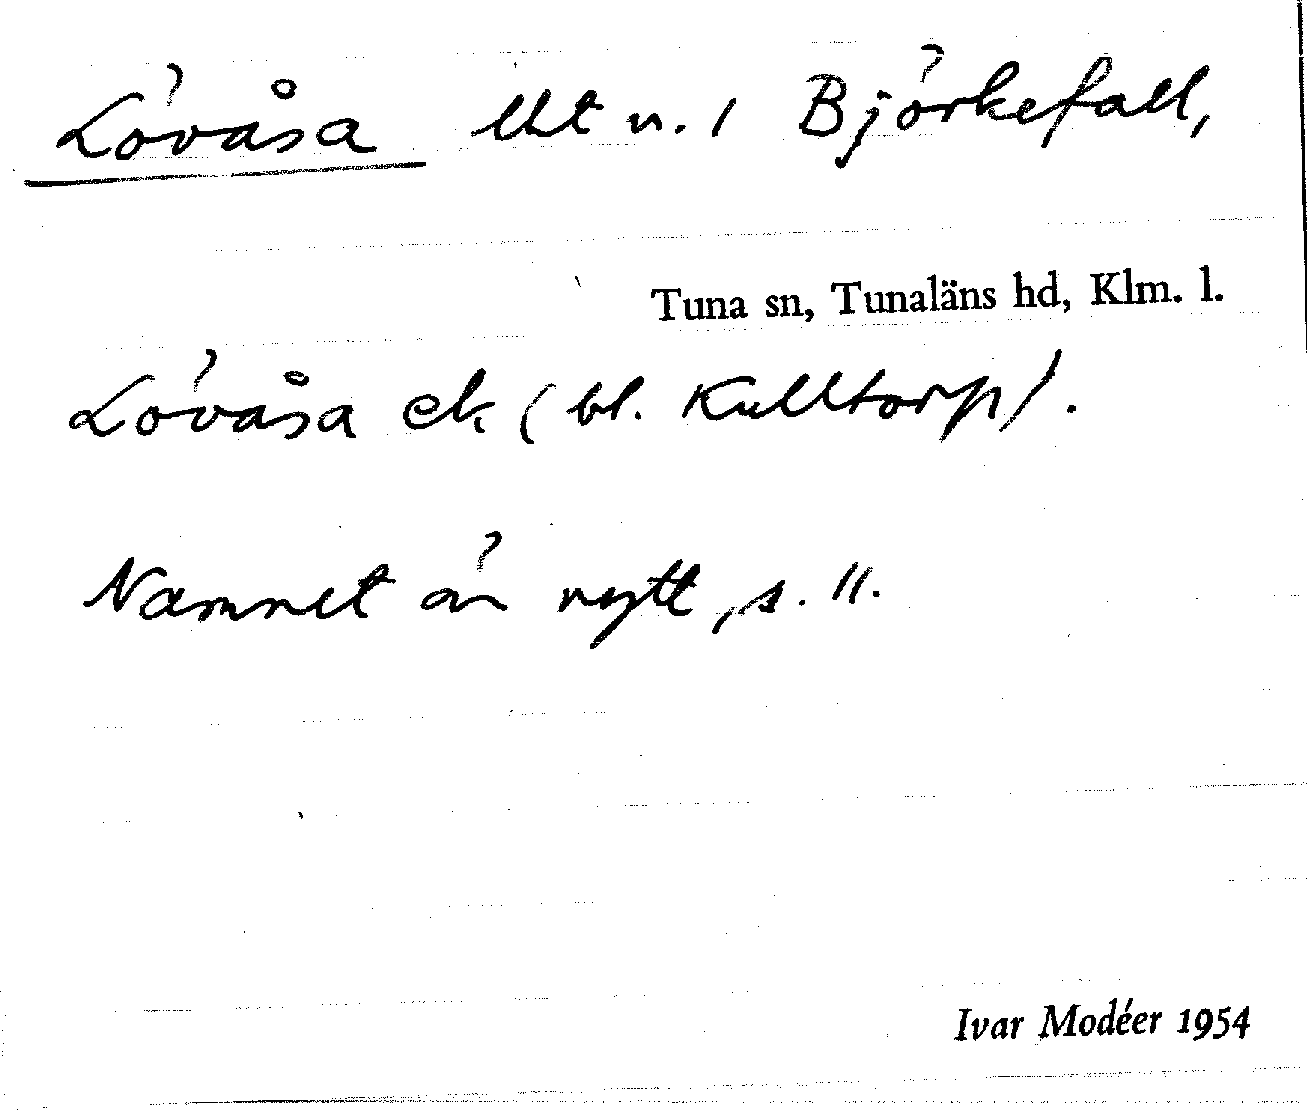 Lövåsa lht u. 1 Björkefall,
Tuna sn, Tunaläns hd, Klm. l.
Lövåsa ek (bl. Kulltorp).
Namnet är nytt, s. 11.
Ivar Modéer 1954